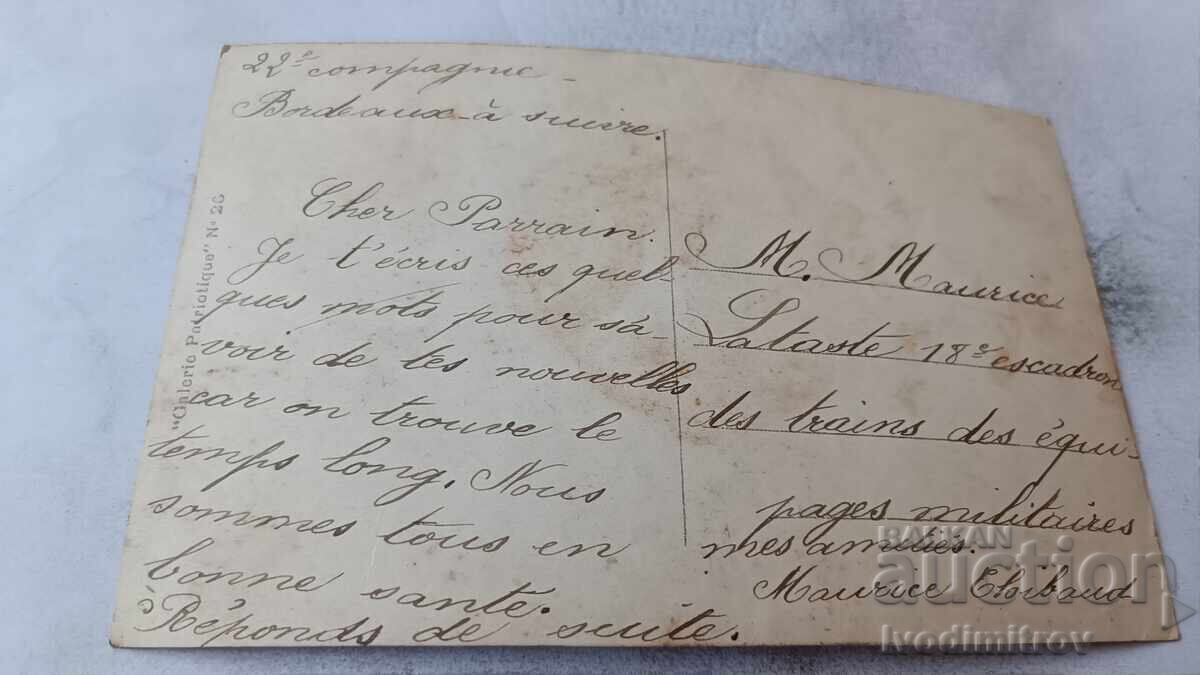 22e compagnie
Bordeaux - à suivre.
Cher Parrain.
Je t'écris ces quel-
ques mots pour sa-
voir de tes nouvelles
car on trouve le
temps long. Nous
sommes tous en
bonne santé.
Réponds de suite.
M. Maurice
Lataste 18e escadron
des trains des équi-
pages militaires
mes amitiés.
Maurice
"Galerie Patriotique" No 26
BALKAN
auction
ivodimitrov